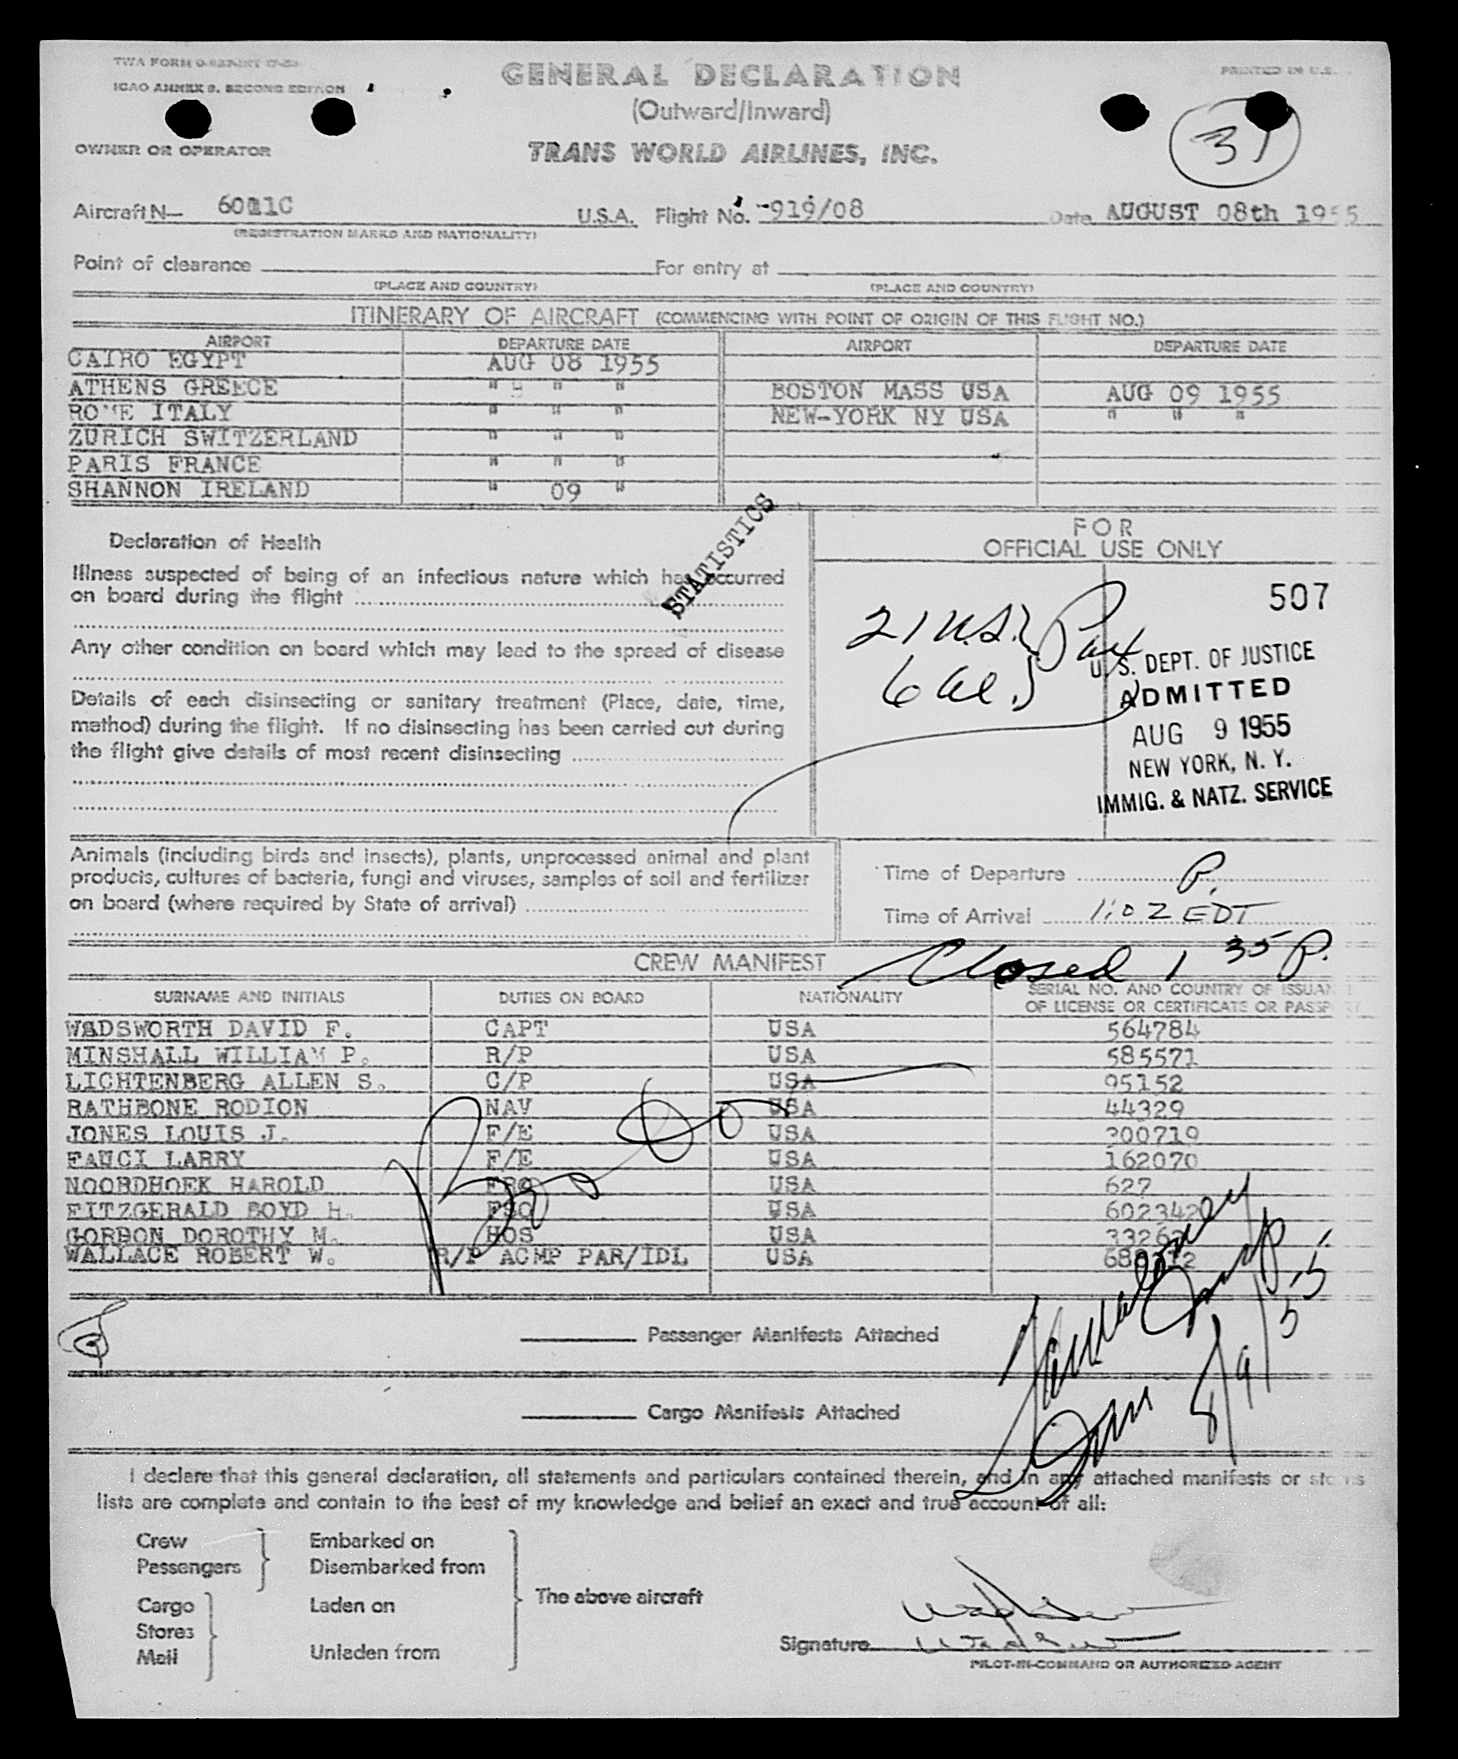 ICAO ANNEX 9, SECOND EDITION
GENERAL DECLARATION
PRINTED IN U.S.
(Outward/Inward)
31
OWNER OR OPERATOR
TRANS WORLD AIRLINES, INC.
Aircraft N— U.S.A. Flight No. -919/08 Date AUGUST 08th 1955
(REGISTRATION MARKS AND NATIONALITY)
Point of clearance For entry at
(PLACE AND COUNTRY) (PLACE AND COUNTRY)
ITINERARY OF AIRCRAFT (COMMENCING WITH POINT OF ORIGIN OF THIS FLIGHT NO.)
AIRPORT DEPARTURE DATE AIRPORT DEPARTURE DATE
CAIRO EGYPT AUG 08 1955
ATHENS GREECE " " " " BOSTON MASS USA AUG 09 1955
ROME ITALY " " " NEW-YORK NY USA " " "
ZURICH SWITZERLAND " " "
PARIS FRANCE " " "
SHANNON IRELAND " 09 "
STATISTICS
Declaration of Health
Illness suspected of being of an infectious nature which has occurred
on board during the flight
Any other condition on board which may lead to the spread of disease
Details of each disinsecting or sanitary treatment (Place, date, time,
method) during the flight. If no disinsecting has been carried out during
the flight give details of most recent disinsecting
FOR
OFFICIAL USE ONLY
507
21 U.S.
6 al.
U.S. DEPT. OF JUSTICE
ADMITTED
AUG 9 1955
NEW YORK, N. Y.
IMMIG. & NATZ. SERVICE
Animals (including birds and insects), plants, unprocessed animal and plant
products, cultures of bacteria, fungi and viruses, samples of soil and fertilizer
on board (where required by State of arrival)
Time of Departure P.
Time of Arrival 1:02 EDT
Closed 1 35 P.
CREW MANIFEST
SURNAME AND INITIALS DUTIES ON BOARD NATIONALITY SERIAL NO. AND COUNTRY OF ISSUAN
OF LICENSE OR CERTIFICATE OR PASSP
WADSWORTH DAVID F. CAPT USA 564784
MINSHALL WILLIAM P. R/P USA 585571
LICHTENBERG ALLEN S. C/P USA 95152
RATHBONE RODION NAV USA 44329
JONES LOUIS J. F/E USA 200719
FAUCI LARRY F/E USA 162070
NOORDHOEK HAROLD USA 627
FITZGERALD BOYD H. USA 602342
GORDON DOROTHY M. HOS USA
WALLACE ROBERT W. R/P ACMP PAR/IDL USA
8/9/55
Passenger Manifests Attached
Cargo Manifests Attached
I declare that this general declaration, all statements and particulars contained therein, and in any attached manifests or stores
lists are complete and contain to the best of my knowledge and belief an exact and true account of all:
Crew
Passengers
Embarked on
Disembarked from
Cargo
Stores
Mail
Laden on
Unladen from
The above aircraft
Signature
PILOT-IN-COMMAND OR AUTHORIZED AGENT